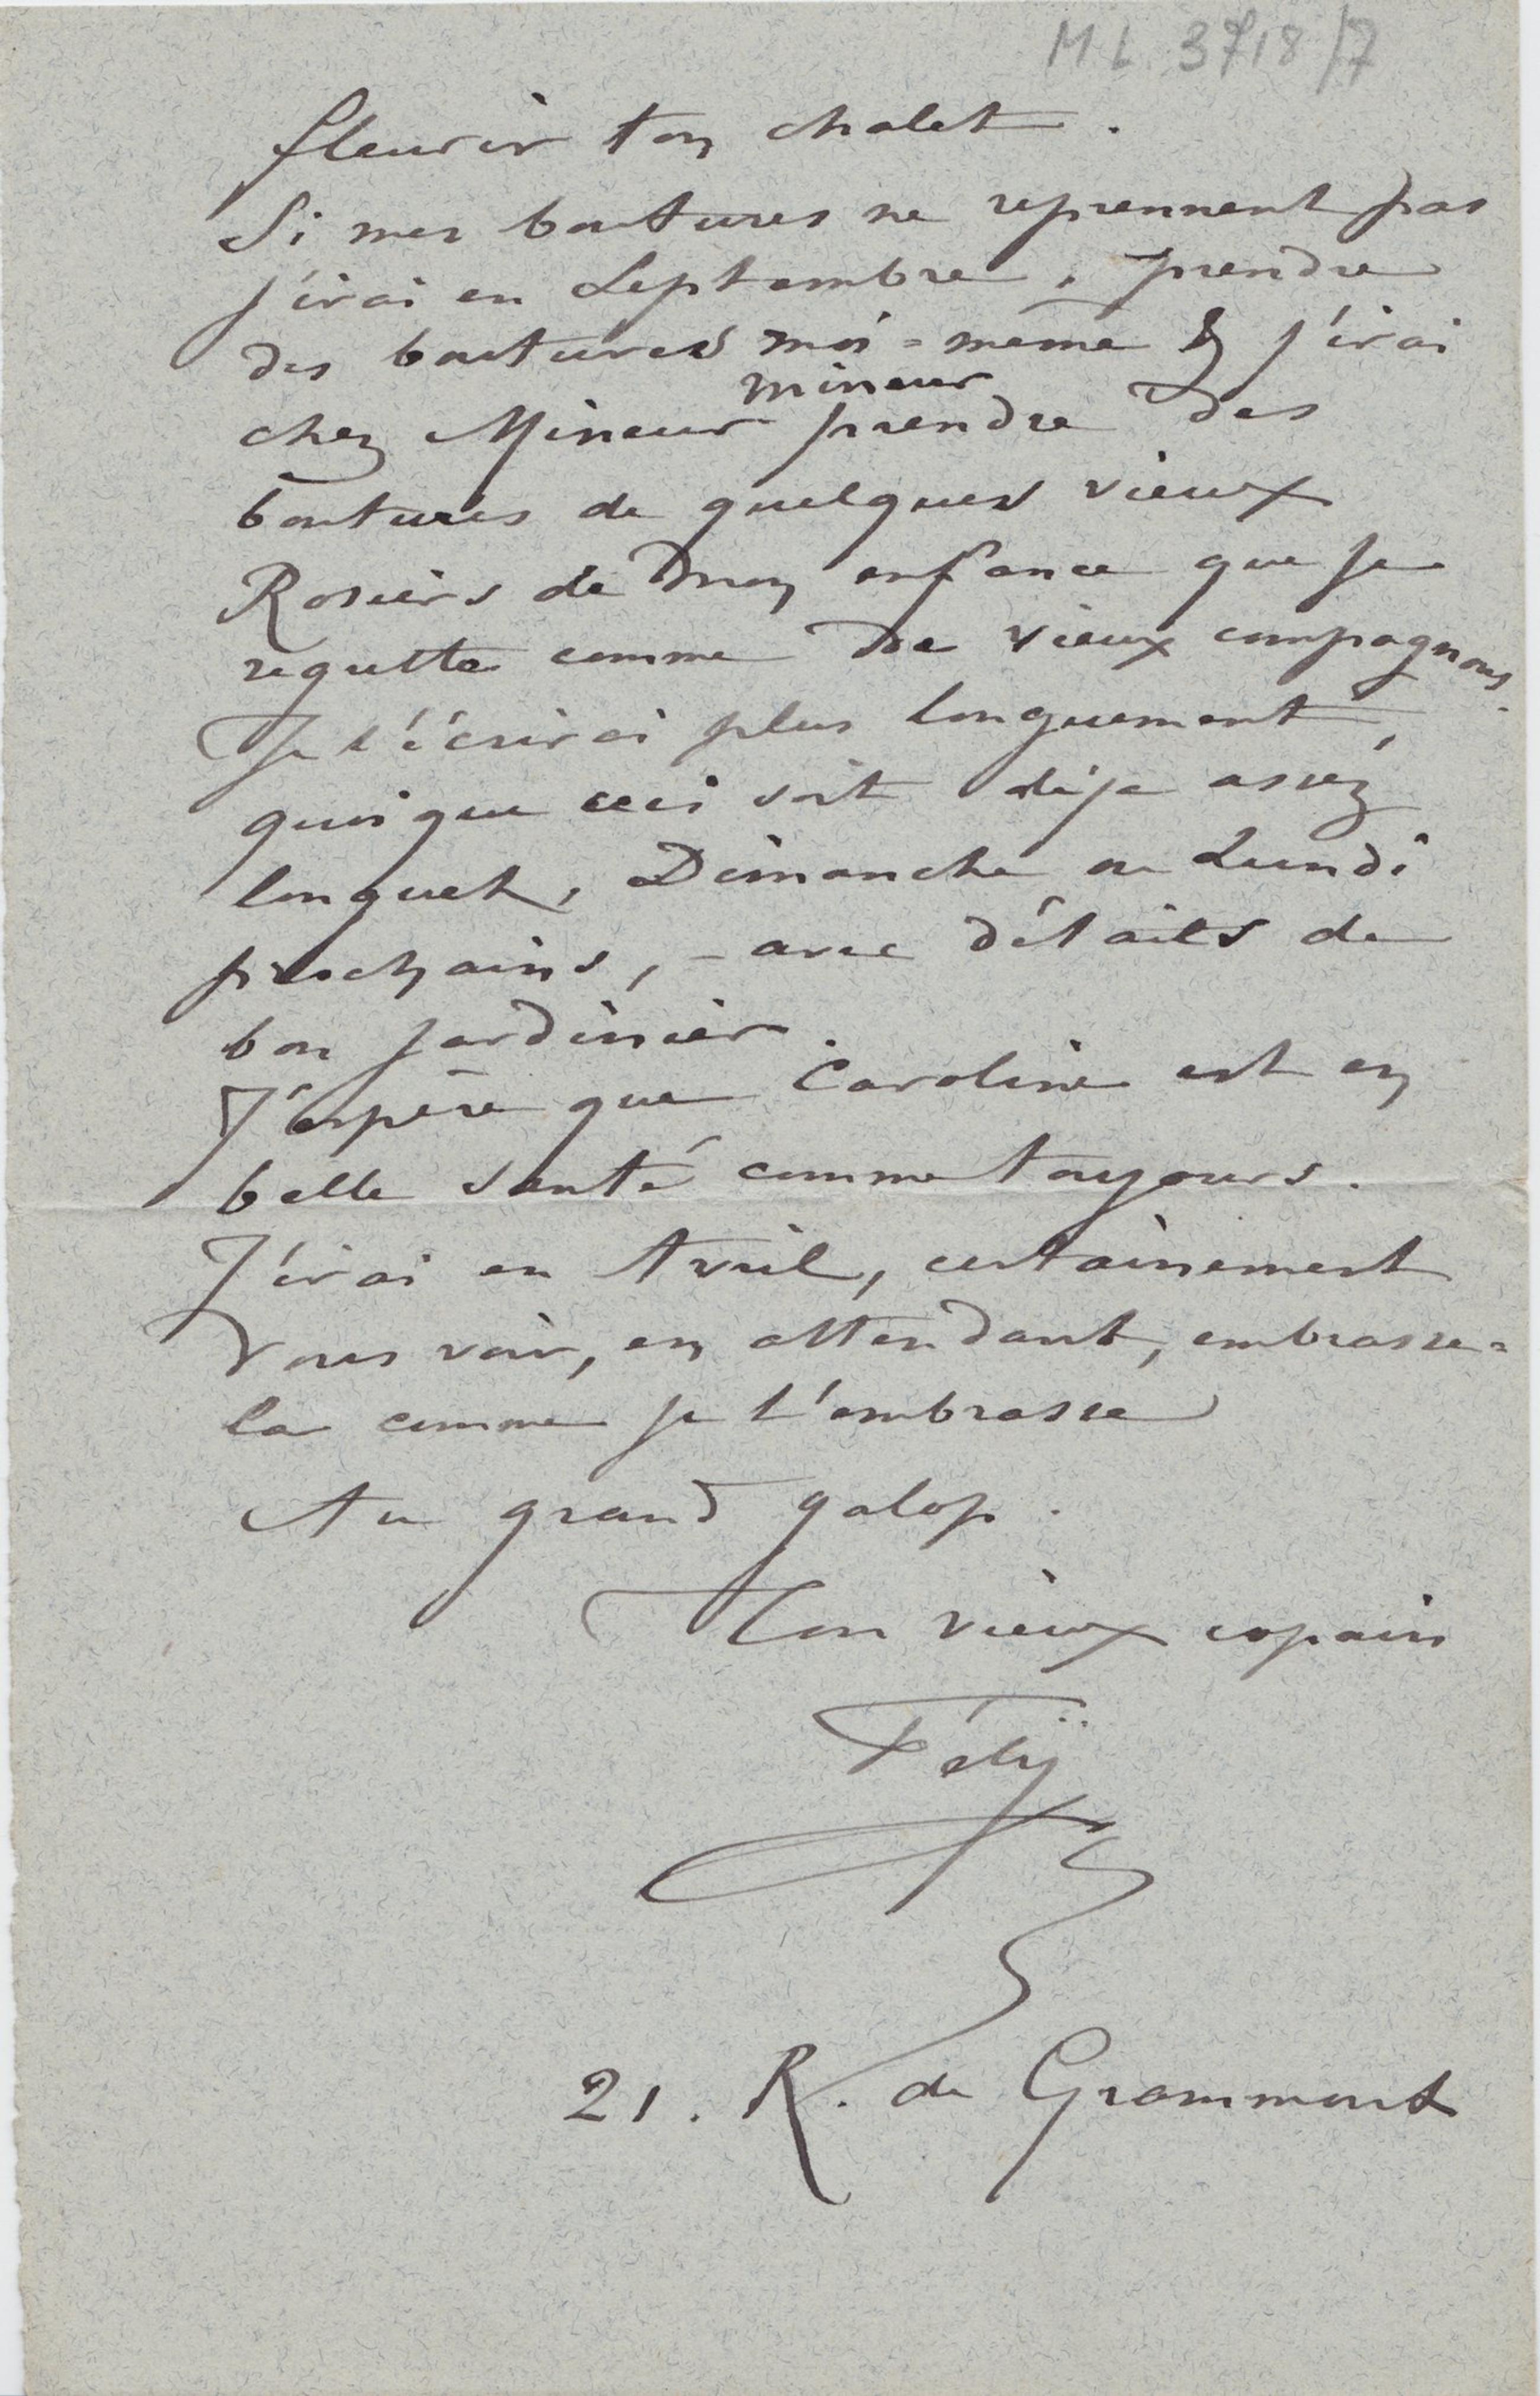 ML 3718/7
fleurir ton chalet.
Si mes boutures ne reprennent pas
j'irai en Septembre, prendre
des boutures moi=même & j'irai
mineur
chez Mineur prendre des
boutures de quelques vieux
Rosiers de mon enfance que je
regrette comme de vieux compagnons.
Je t'écrirai plus longuement,
quoique ceci soit déja assez
longuet, Dimanche ou Lundi
prochains, – avec détails de
bon jardinier.
J'espère que Caroline est en
belle santé comme toujours.
J'irai en Avril, certainement
vous voir, en attendant, embrasse=
la comme je t'embrasse
Au grand galop.
Ton vieux copain
Fély
21. R. de Grammont